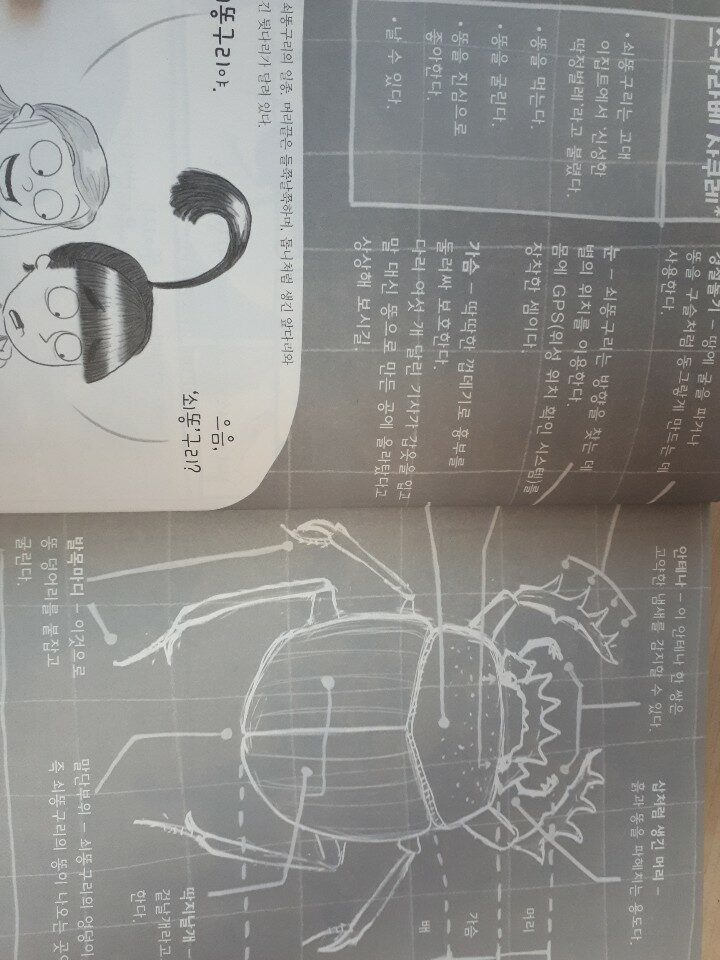 스카라베 사쿠레"
• 쇠똥구리는 고대
이집트에서 '신성한
딱정벌레'라고 불렸다.
• 똥을 먹는다.
• 똥을 굴린다.
• 똥을 진심으로
좋아한다.
• 날 수 있다.
땅에 굴을 파거나
똥을 구슬처럼 동그랗게 만드는 데
사용한다.
눈 – 쇠똥구리는 방향을 찾는 데
별의 위치를 이용한다.
몸에 GPS(위성 위치 확인 시스템)를
장착한 셈이다.
가슴 – 딱딱한 껍데기로 흉부를
둘러싸 보호한다.
다리 여섯 개 달린 기사가 갑옷을 입고
말 대신 똥으로 만든 공에 올라탔다고
상상해 보시길.
쇠똥구리의 일종. 머리끝은 들쭉날쭉하며, 톱니처럼 생긴 앞다리와
긴 뒷다리가 달려 있다.
똥구리야.
으음,
'쇠똥'구리?
안테나 – 이 안테나 한 쌍은
고약한 냄새를 감지할 수 있다.
삽처럼 생긴 머리 –
흙과 똥을 파헤치는 용도다.
머리
가슴
배
발목마디 – 이것으로
똥 덩어리를 붙잡고
굴린다.
말단부위 – 쇠똥구리의 엉덩이
즉 쇠똥구리의 똥이 나오는 곳이
딱지날개 –
겉날개라고
한다.